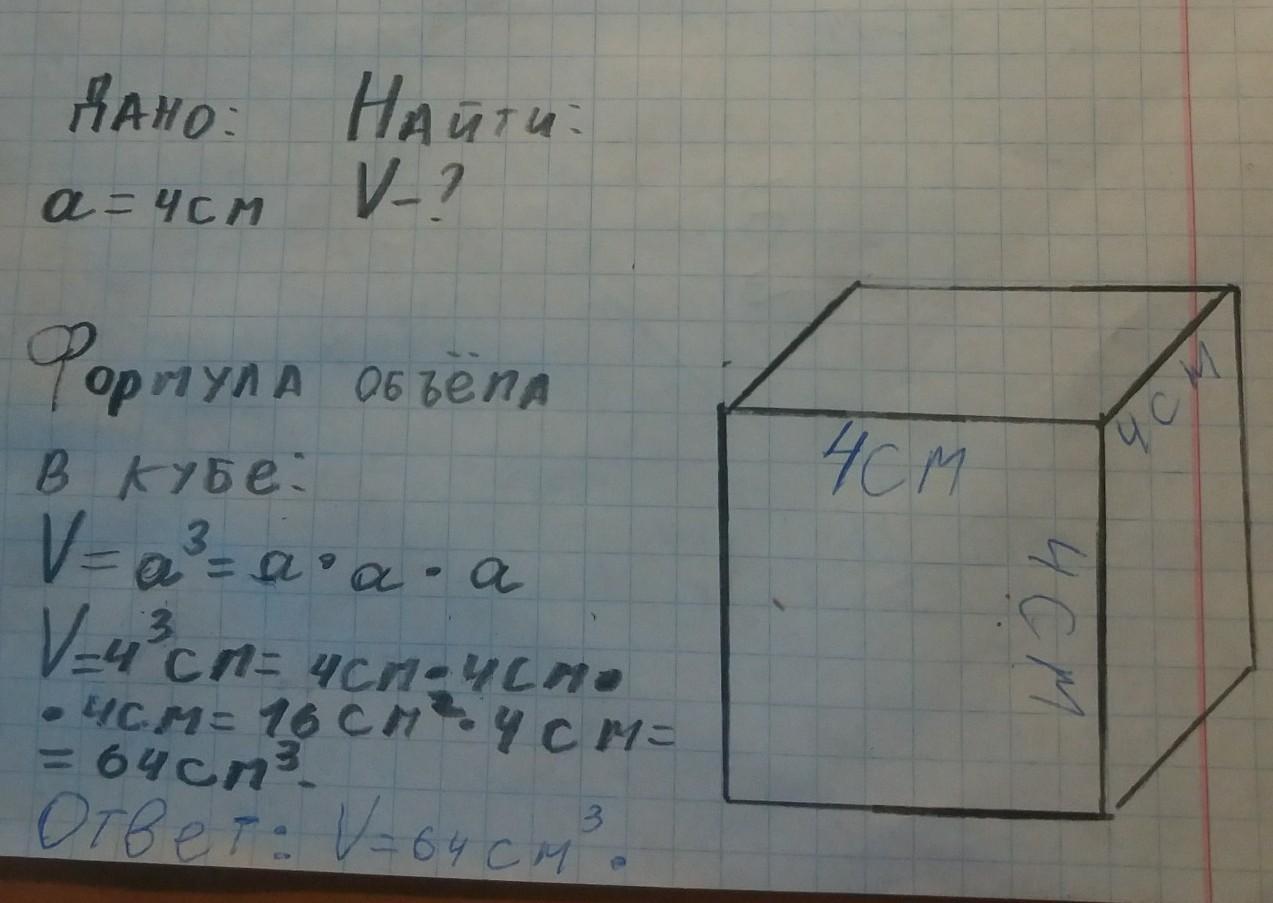 Дано: Найти:
a = 4 см V - ?
Формула объёма
в кубе:
V = a³ = a · a · a
V = 4³ см = 4 см · 4 см ·
· 4 см = 16 см² · 4 см =
= 64 см³.
Ответ: V = 64 см³.
4 см
4 см
4 см